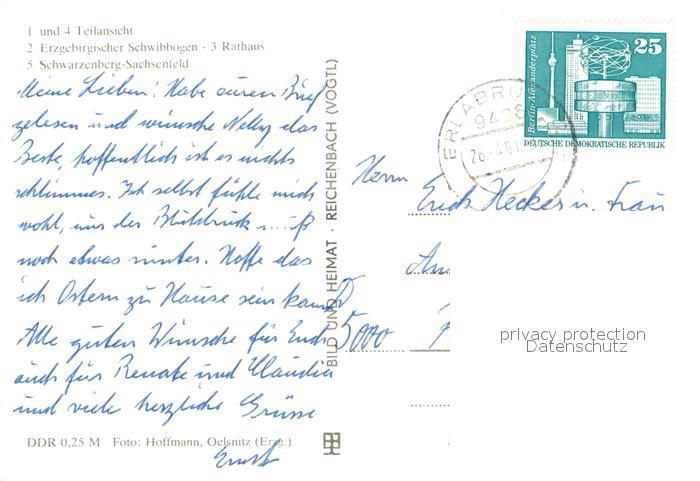 1 und 4 Teilansicht
2 Erzgebirgischer Schwibbogen - 3 Rathaus
5 Schwarzenberg-Sachsenfeld
Meine Lieben! Habe euren Brief
gelesen und wünsche Nelly das
Beste, hoffentlich ist es nichts
schlimmes. Ich selbst fühle mich
wohl, nur der Blutdruck muß
noch etwas runter. Hoffe das
ich Ostern zu Hause sein kann
Alle guten Wünsche für Euch
auch für Renate und Claudia
und viele herzliche Grüsse
Ernst
DDR 0,25 M Foto: Hoffmann, Oelsnitz (Erzg.)
BILD UND HEIMAT · REICHENBACH (VOGTL)
Berlin-Alexanderplatz
25
DEUTSCHE DEMOKRATISCHE REPUBLIK
ERLABRU
Herrn
Erich Hecker u. Frau
Am
D
5000
privacy protection
Datenschutz